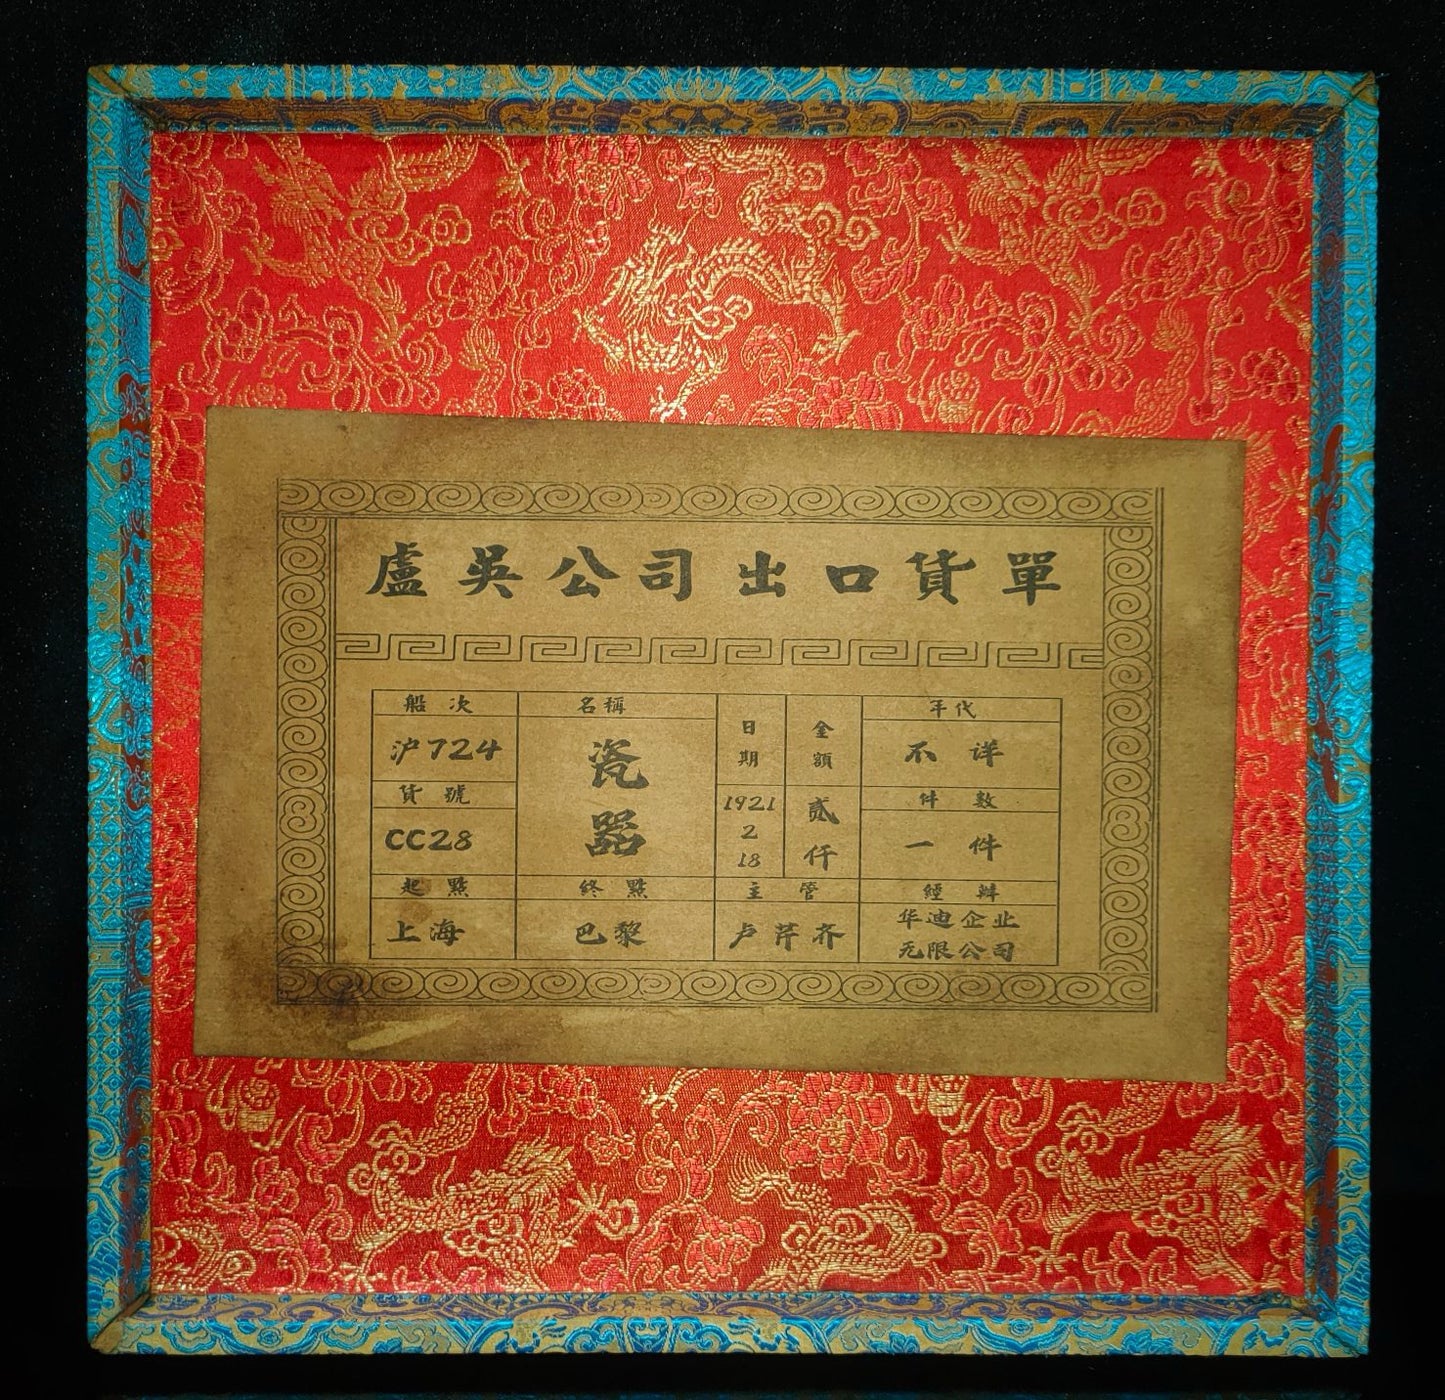 盧吳公司出口貨單
船次 名稱 日期 金額 年代
沪724 瓷器 1921 2 18 贰仟 不详
貨號 件数
CC28 一件
起點 終點 主管 經辦
上海 巴黎 卢芹齐 华迪企业
无限公司